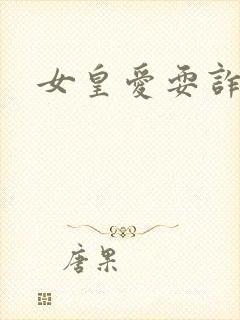 女皇愛耍詐
唐果